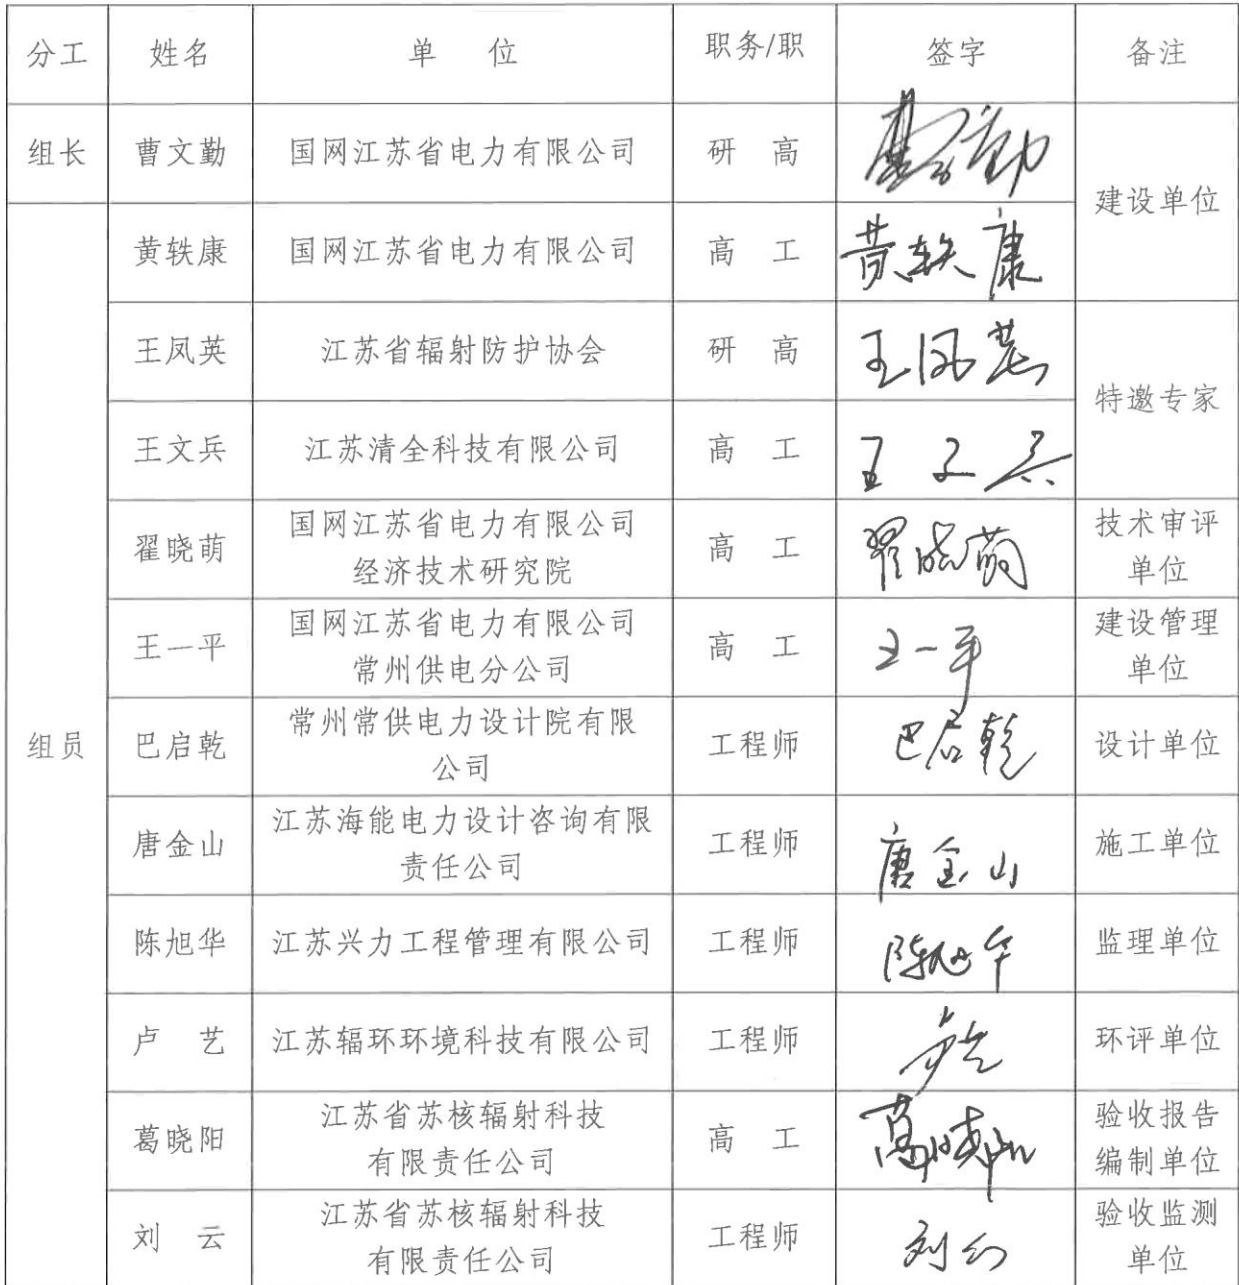 分工 姓名 单 位 职务/职 签字 备注
组长 曹文勤 国网江苏省电力有限公司 研 高 曹文勤 建设单位
组员 黄轶康 国网江苏省电力有限公司 高 工 黄轶康
王凤英 江苏省辐射防护协会 研 高 王凤英 特邀专家
王文兵 江苏清全科技有限公司 高 工 王文兵
翟晓萌 国网江苏省电力有限公司
经济技术研究院 高 工 翟晓萌 技术审评
单位
王一平 国网江苏省电力有限公司
常州供电分公司 高 工 王一平 建设管理
单位
巴启乾 常州常供电力设计院有限
公司 工程师 巴启乾 设计单位
唐金山 江苏海能电力设计咨询有限
责任公司 工程师 唐金山 施工单位
陈旭华 江苏兴力工程管理有限公司 工程师 陈旭华 监理单位
卢 艺 江苏辐环环境科技有限公司 工程师 卢艺 环评单位
葛晓阳 江苏省苏核辐射科技
有限责任公司 高 工 葛晓阳 验收报告
编制单位
刘 云 江苏省苏核辐射科技
有限责任公司 工程师 刘云 验收监测
单位